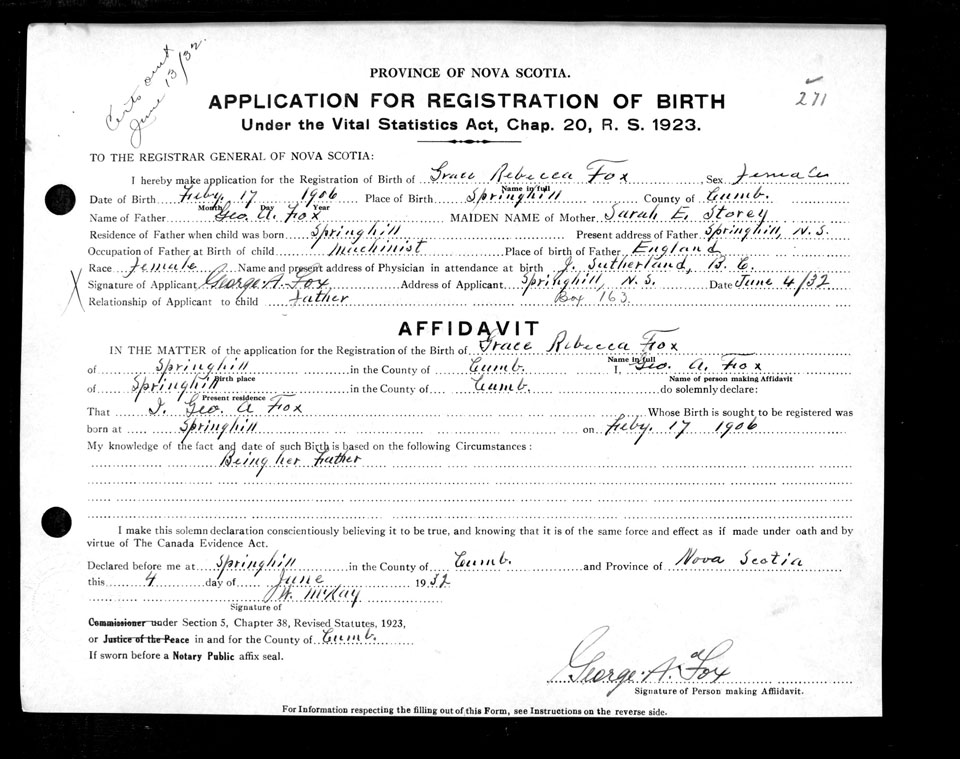 Certs out
June 13/32.
271
PROVINCE OF NOVA SCOTIA.
APPLICATION FOR REGISTRATION OF BIRTH
Under the Vital Statistics Act, Chap. 20, R. S. 1923.
TO THE REGISTRAR GENERAL OF NOVA SCOTIA:
I hereby make application for the Registration of Birth of Grace Rebecca Fox, Sex Female
Name in full
Date of Birth Feby. 17 1906 Place of Birth Springhill County of Cumb.
Month Day Year
Name of Father Geo. A. Fox MAIDEN NAME of Mother Sarah E. Storey
Residence of Father when child was born Springhill Present address of Father Springhill, N.S.
Occupation of Father at Birth of child Machinist Place of birth of Father England
Race Female Name and present address of Physician in attendance at birth J. Sutherland, B. C.
X Signature of Applicant George A. Fox Address of Applicant Springhill, N.S. Date June 4/32
Relationship of Applicant to child Father Box 163.
AFFIDAVIT
IN THE MATTER of the application for the Registration of the Birth of Grace Rebecca Fox
Name in full
of Springhill in the County of Cumb. I, Geo. A. Fox
Birth place Name of person making Affidavit
of Springhill in the County of Cumb. do solemnly declare:
Present residence
That I. Geo. A Fox Whose Birth is sought to be registered was
born at Springhill on Feby. 17 1906
My knowledge of the fact and date of such Birth is based on the following Circumstances:
Being her Father
I make this solemn declaration conscientiously believing it to be true, and knowing that it is of the same force and effect as if made under oath and by
virtue of The Canada Evidence Act.
Declared before me at Springhill in the County of Cumb. and Province of Nova Scotia
this 4 day of June 1932
W. McKay
Signature of
Commissioner under Section 5, Chapter 38, Revised Statutes, 1923,
or Justice of the Peace in and for the County of Cumb.
If sworn before a Notary Public affix seal.
George A. Fox
Signature of Person making Affidavit.
For Information respecting the filling out of this Form, see Instructions on the reverse side.